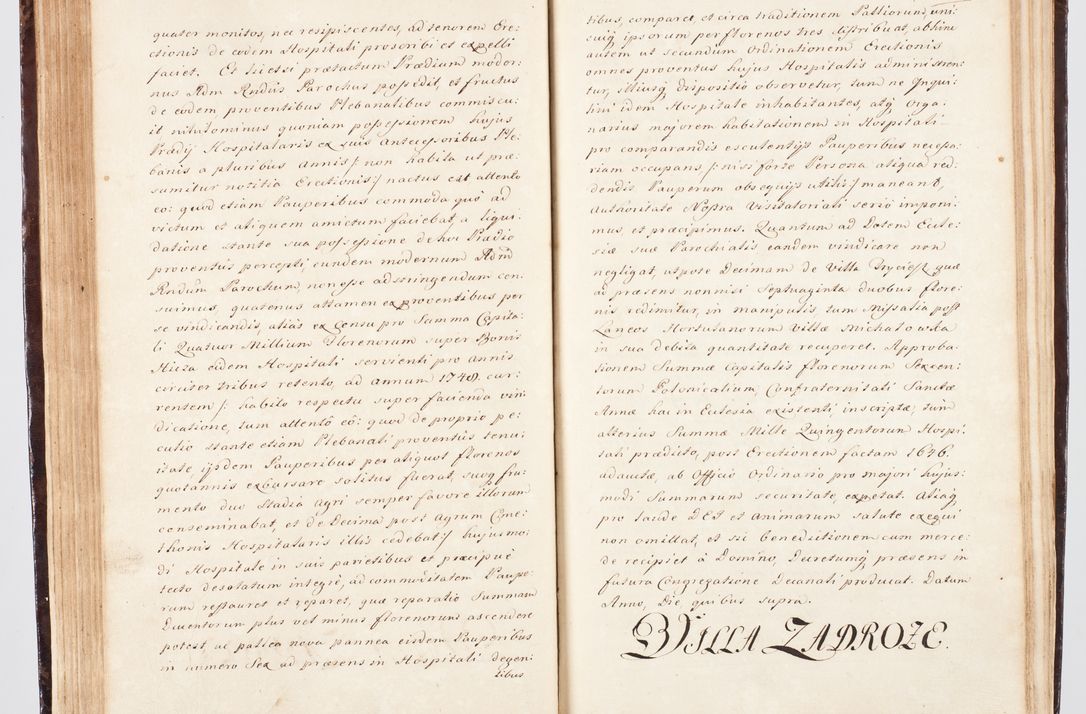 quater monitos, nec resipiscentes, ad tenorem Ere¬
ctionis de eodem Hospitali proscribi et expelli
faciet. Et licet si prætactum Prædium moder:
nus Adm Rndus Parochus possedit, et fructus
de eodem proventibus Plebanalibus commiscu:
it nihilominus quoniam possessionem hujus
Prædij Hospitalaris ex suis Antecessoribus Ple:
banis a pluribus annis /: non habita ut præ:
sumitur notitia Erectionis :/ nactus est attento
eo: quod etiam Pauperibus commoda quo ad
victum et aliquem amictum faciebat, a liqui:
datione stante sua possessione de hoc Prædio
proventus percepti, eundem modernum Adm
Rndum Parochum, non esse adstringendum cen:
suimus, quatenus attamen ex proventibus per
se vindicandis, alias ex censu pro Summa Capita:
li Quatuor Millium Florenorum super Bonis
eidem Hospitali servienti pro annis
circiter tribus retento, ad annum 1748. cur:
rentem /: habito respectu super facienda vin:
dicatione, tum attento eo: quod de proprio pe:
culio stante etiam Plebanali proventus tenu:
itate, ijsdem Pauperibus per aliquot florenos
quotannis exbursare solitus fuerat, suoq fru:
mento duo Stadia Agri semper favore illorum
conseminabat, et de Decima post Agrum Cme:
thonis Hospitalaris illis cedebat :/ hujusmo:
di Hospitale in suis parietibus et præcipuè
tecto desolatum integrè, ad commoditatem Paupe:
rum restauret et reparet, quæ reparatio Summam
Ducentorum plus vel minus florenorum ascendere
potest, ac pallia nova pannea eisdem Pauperibus
in numero Sex ad præsens in Hospitali degen:
tibus
tibus, comparet, et circa traditionem Palliorum, uni:
cuiq ipsorum per florenos tres distribuat, abhinc
autem ut secundum Ordinationem Erectionis
omnes proventus hujus Hospitalis administren:
tur, illiusq dispositio observetur, tum ne Inqui:
lini idem Hospitale inhabitantes, atq Orga:
narius majorem habitationem in Hospitali
pro comparandis esculentijs Pauperibus necessa:
riam occupans /: nisi forte Persona aliqua red:
dendis Pauperum obsequijs utilis :/ maneant,
Authoritate Nostra Visitatoriali serio imponi:
mus, et præcipimus. Quantum ad Dotem Eccle:
siæ suæ Parochialis eandem vindicare non
negligat, utpote Decimam de Villa Tryciesz quæ
ad præsens nonnisi Septuaginta duobus flore:
nis redimitur, in manipulis tum Missalia post
Laneos Hortulanorum Villæ Michalowska
in sua debita quantitate recuperet. Approba:
tionem Summæ Capitalis florenorum Sexcen:
torum Polonicalium, Confraternitati Sanctæ
Annæ hac in Ecclesia existenti, inscriptæ, tum
alterius Summæ Mille Quingentorum Hospi:
tali prædicto, post Erectionem factam 1646.
adauctæ, ab Officio Ordinario pro majori hujus:
modi Summarum securitate, expetat. Aliaq
pro laude DEI et animarum salute exequi
non omittat, et sic benedictionem cum merce:
de recipiet à Domino, Decretumq præsens in
futura Congregatione Decanali producat. Datum
Anno, Die, quibus supra.
VILLA ZADROZE.